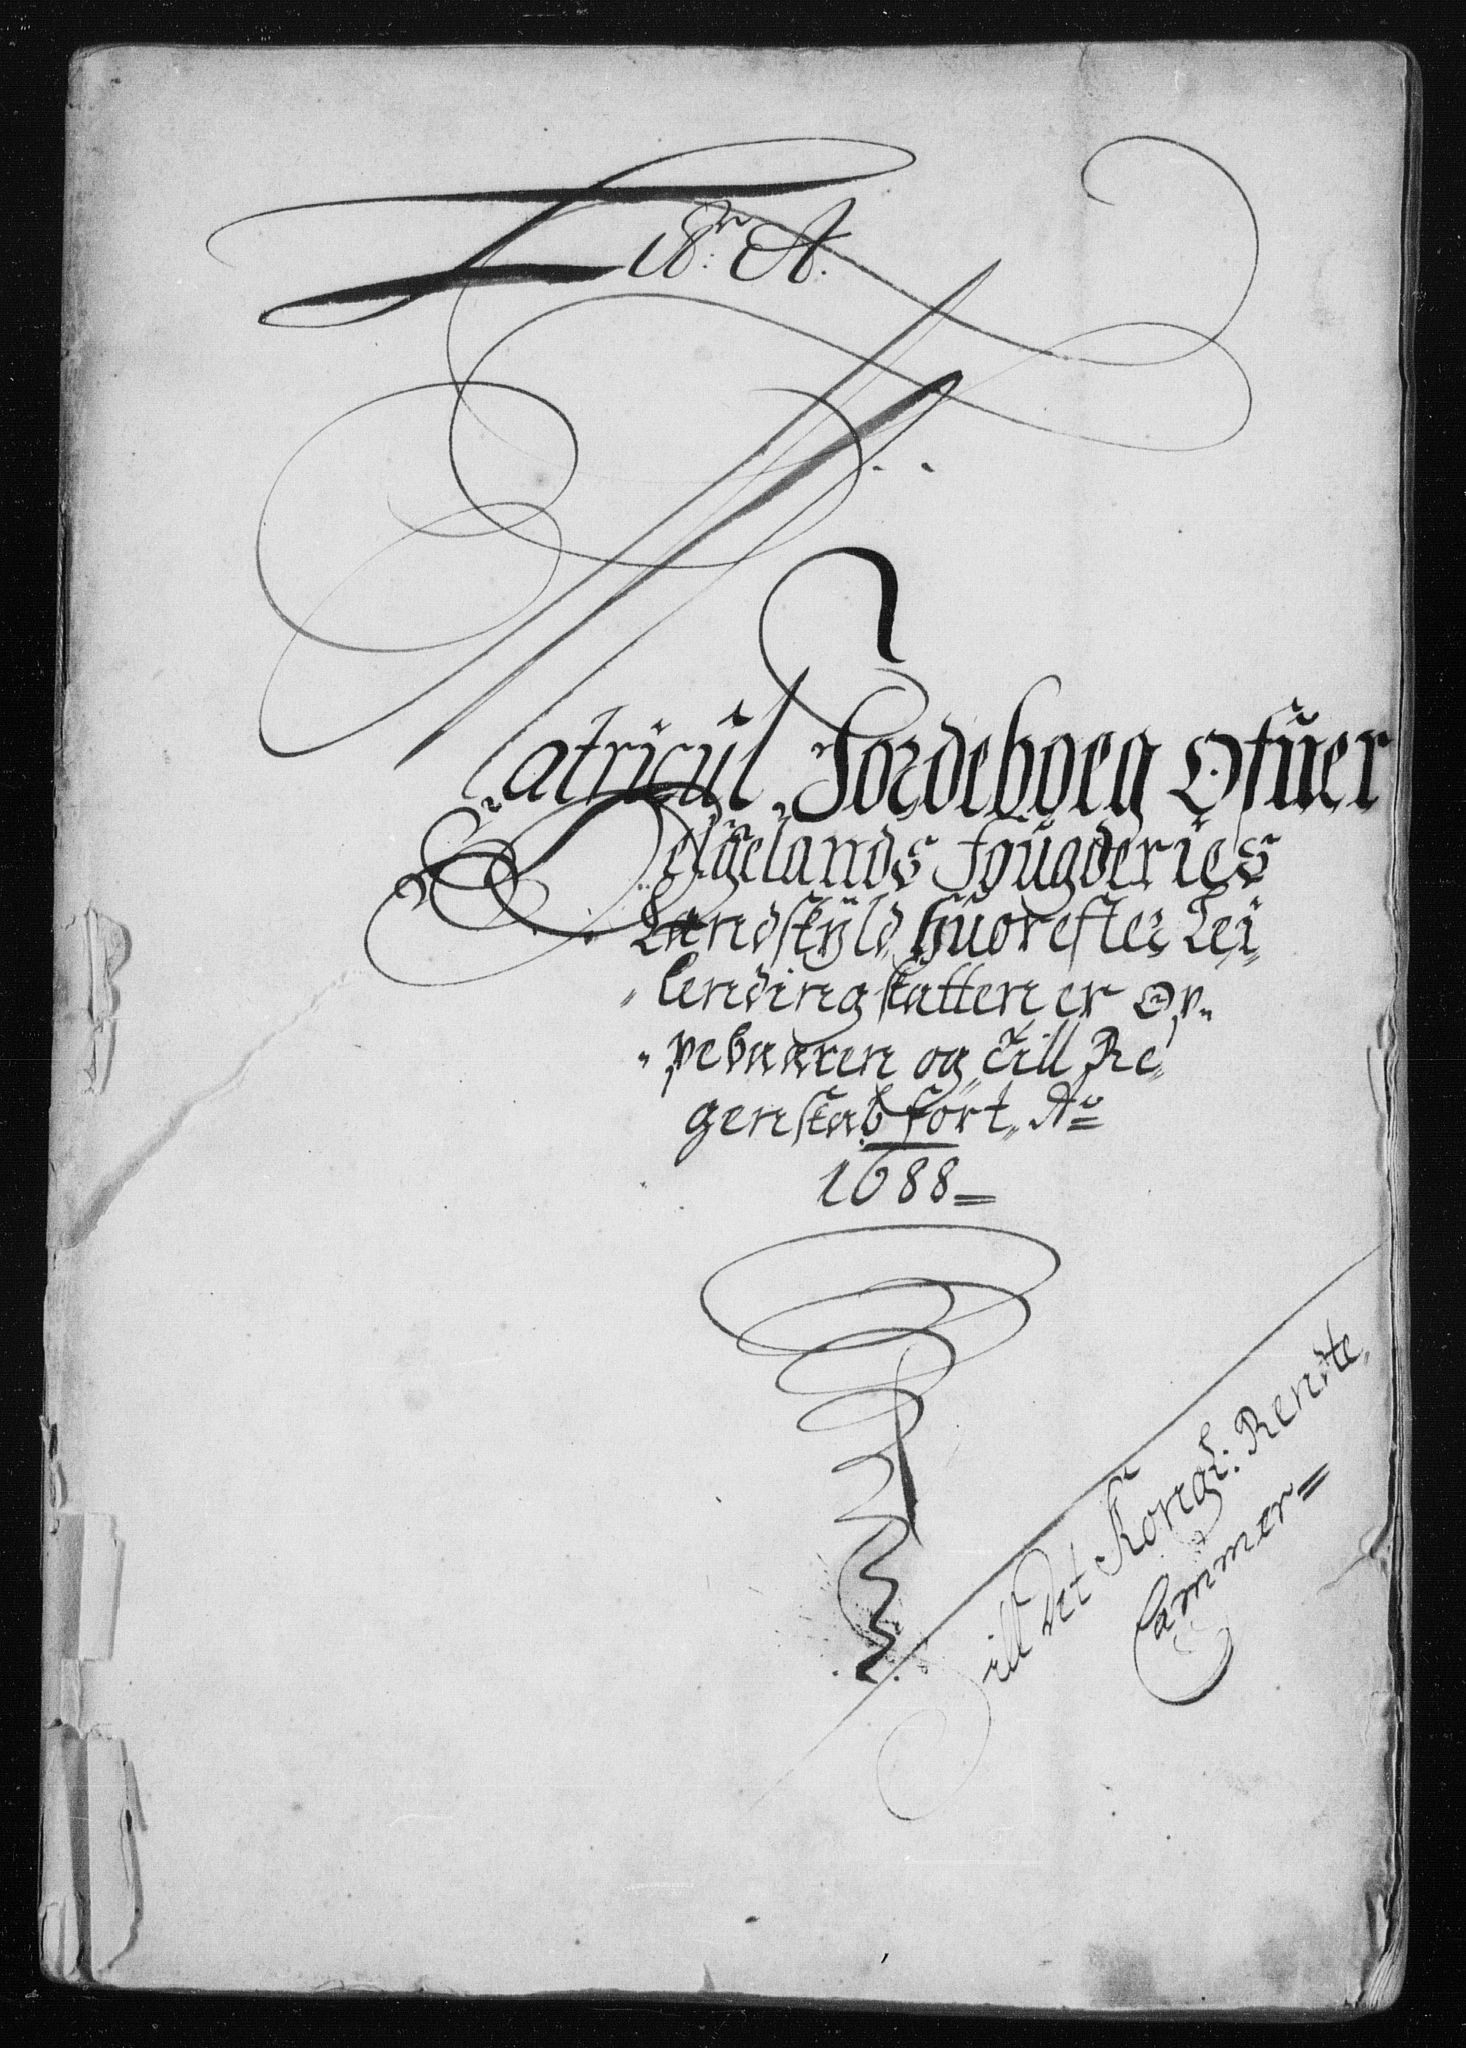 Litr: A:
Matricul, Jordeboeg Ofuer
Helgelands fougderies
Landskyld, huorefter Lei„
„lendingskatten er Op„
„pebaaren og till Re„
genskab fört, Ao
1688=
Till Det Kongl: Rendte„
Cammer=